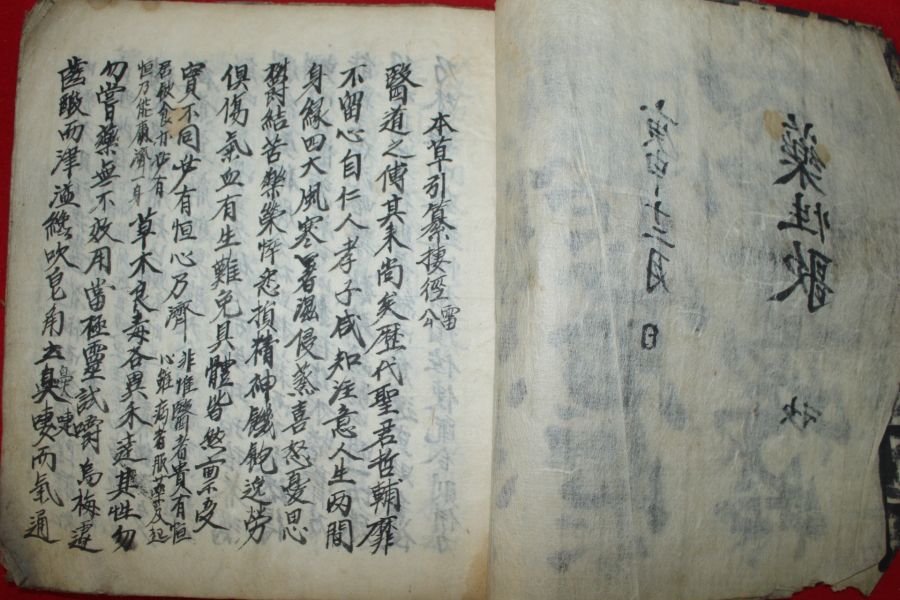 藥性歌
十二月 日
秋
本草引纂捷徑 雷公
醫道之傳其来尚矣歷代聖君哲輔靡
不留心自仁人孝子咸知注意人生兩間
身緣四大風寒暑濕侵蒸喜怒憂思
欝結苦樂榮悴忿損精神饑飽逸勞
俱傷氣血有生難免具體皆然稟受
實不同必有恒心乃濟 非惟醫者貴有恒心雖病者服藥及起
居飲食亦必有恒乃能濟身 草木良毒各異未達其性勿
勿嘗藥無不效用當極靈試嚼烏梅遽
齒酸而津溢纔吹皂角去臭嚏而氣通
鼻嚏